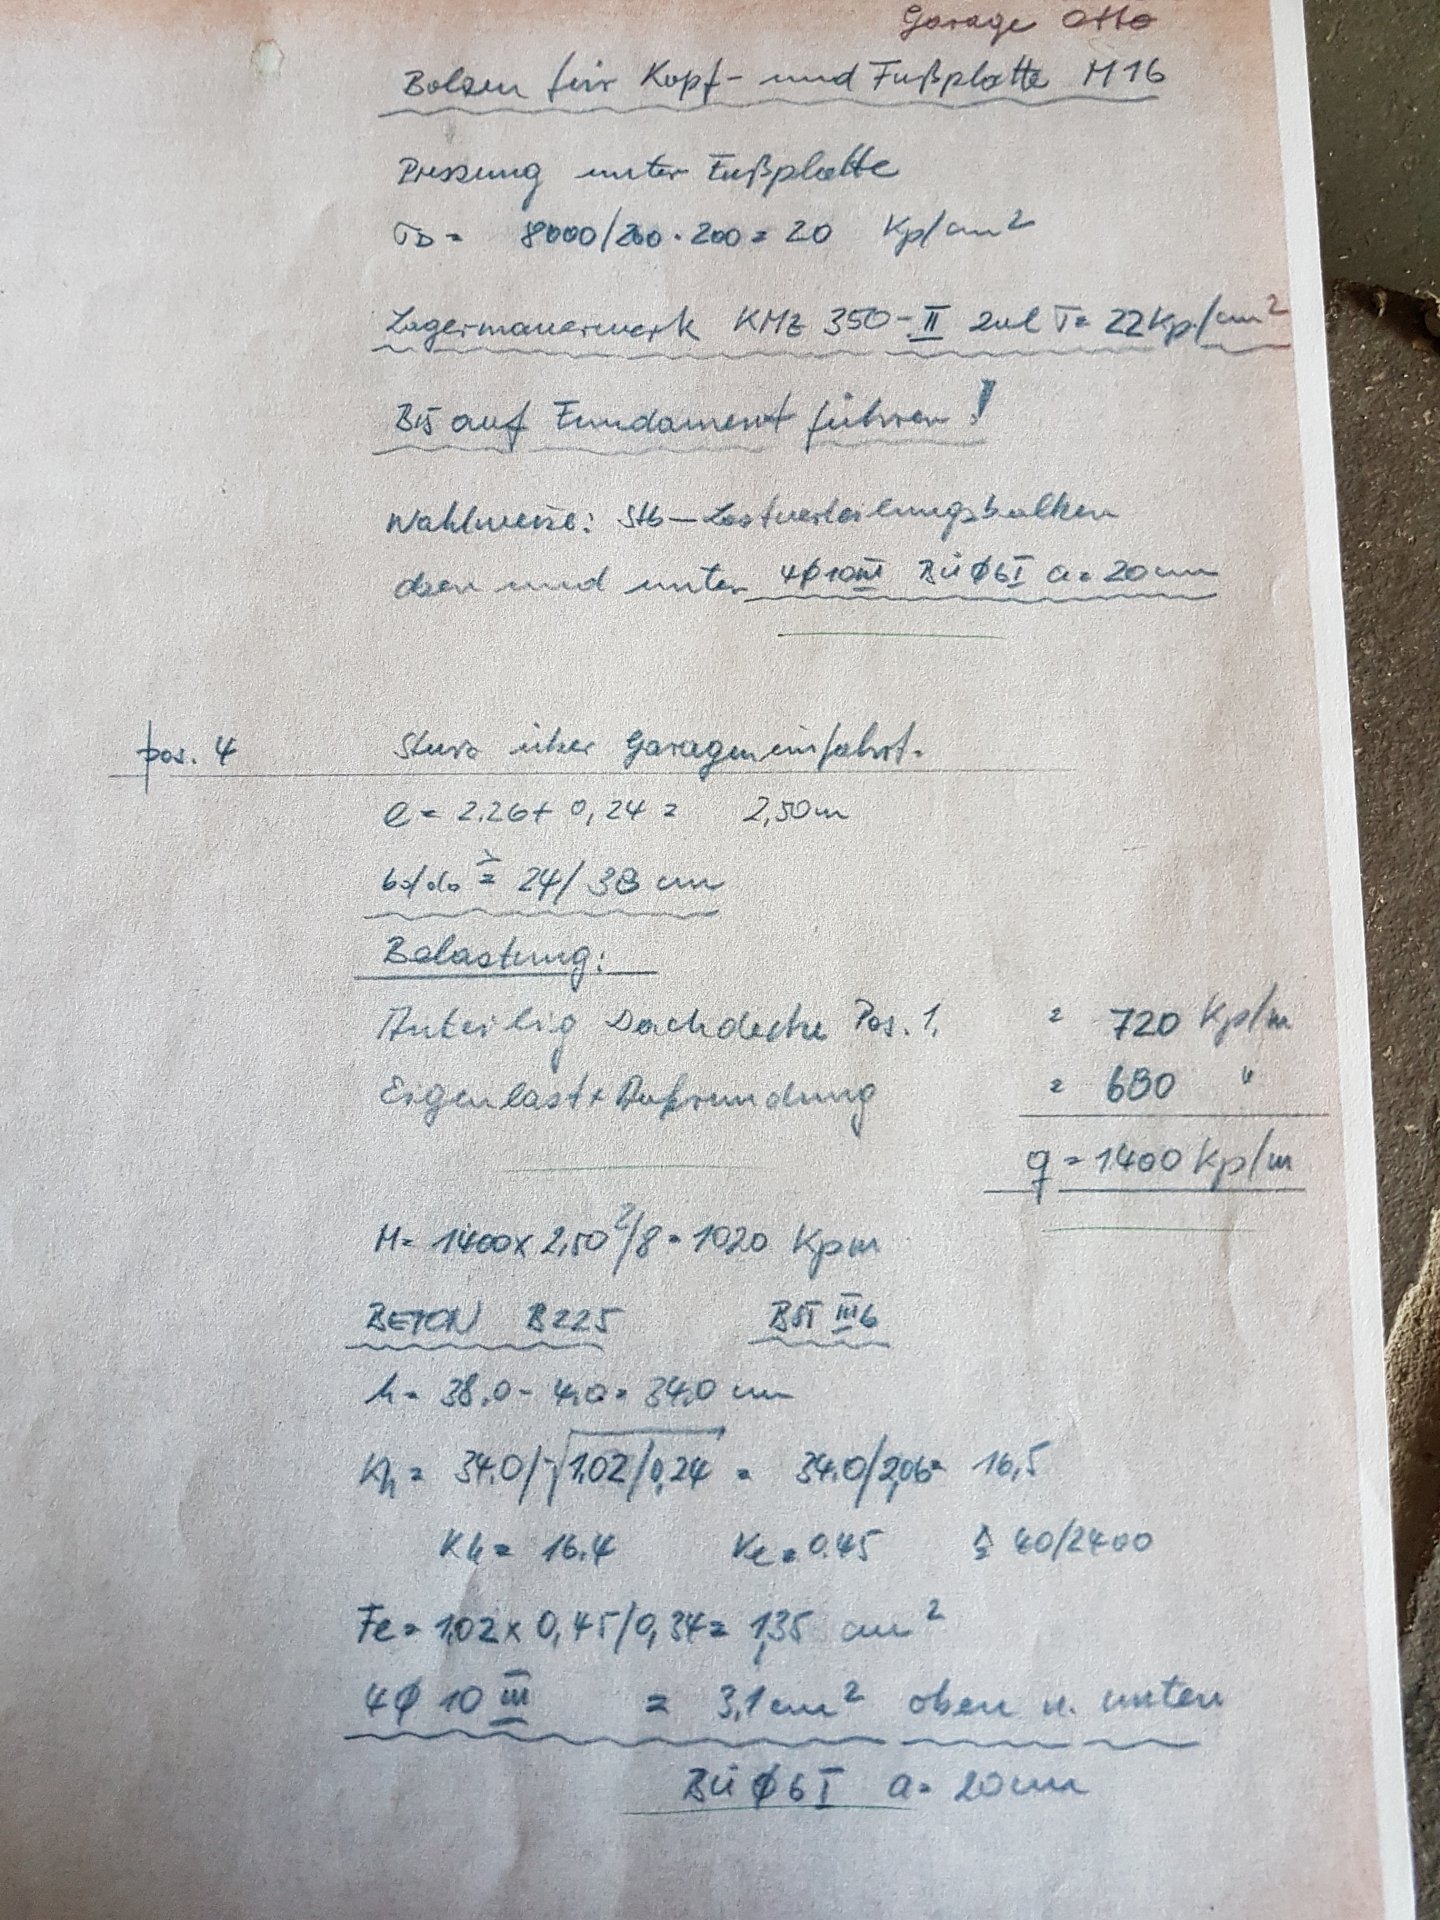 Garage Otto
Bolzen für Kopf- und Fußplatte M16
Pressung unter Fußplatte
σD = 8000/200·200 = 20 Kp/cm²
Lagermauerwerk KMz 350-II zul σ = 22 Kp/cm²
Bis auf Fundament führen!
Wahlweise: Stb-Lastverteilungsbalken
oben und unten 4Ø10III Bü Ø6I a = 20cm
pos. 4 Sturz über Garageneinfahrt.
l = 2.26 + 0,24 = 2,50m
bo/do ≧ 24/38 cm
Belastung:
Anteilig Dachdecke Pos. 1. = 720 Kp/m
Eigenlast + Aufrundung = 680 "
q = 1400 Kp/m
M = 1400 x 2,50²/8 = 1020 Kpm
BETON B225 BSt IIIb
h = 38.0 - 4,0 = 34,0 cm
Kh = 34.0/√1.02/0,24 = 34.0/2,06 = 16,5
Kh = 16.4 Ke = 0.45 ≙ 40/2400
Fe = 1,02 x 0,45/0,34 = 1,35 cm²
4Ø 10 III = 3,1 cm² oben u. unten
Bü Ø 6 I a = 20cm